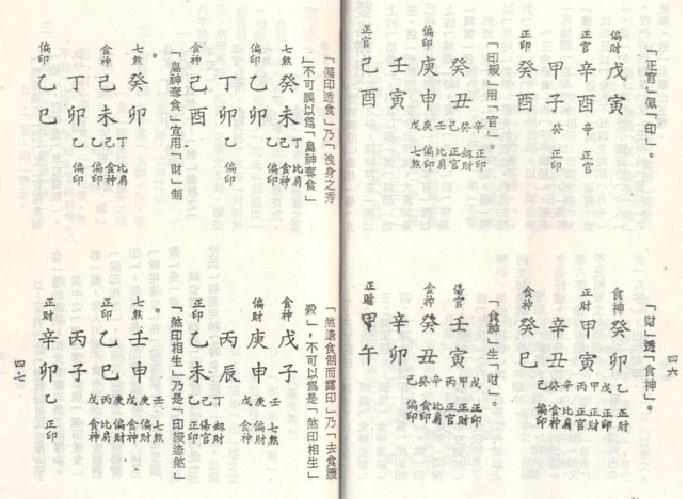 「正官」佩「印」。
偏財 戊寅
正官 辛酉 辛 正官
甲子 癸 正印
正印 癸酉
「印綬」用「官」。
癸丑 辛正印 癸刼財 己正官
偏印 庚申 壬比肩 庚偏印 戊七煞
壬寅
正官 己酉
四六
「財」透「食神」。
食神 癸卯 乙
正財 甲寅 戊正印 丙正官 甲正財
辛丑 辛比肩 癸食神 己偏印
食神 癸巳
「食神」生「財」。
傷官 壬寅 戊正印 丙正官 甲正財
食神 癸丑 辛比肩 癸食神 己偏印
辛卯
正財 甲午
「偏印透食」乃「洩身之秀
」不可誤以爲「梟神奪食」
七煞 癸未 丁比肩 己食神 乙偏印
偏印 乙卯
丁卯 乙 偏印
食神 己酉
「梟神奪食」宜用「財」制
。
七煞 癸卯 乙 偏印
食神 己未 丁比肩 己食神 乙偏印
丁卯 乙 偏印
偏印 乙巳
「煞逢食制而露印」乃「去食護
殺」，不可以爲是「煞印相生」
食神 戊子
偏財 庚申 壬七煞 庚偏財 戊食神
丙辰
正印 乙未 丁刼財 己傷官 乙正印
「煞印相生」乃是「印授逢煞」
。
七煞 壬申 壬七煞 庚偏財 戊食神
正印 乙巳 庚偏財 丙比肩 戊食神
丙子
正財 辛卯 乙 正印
四七